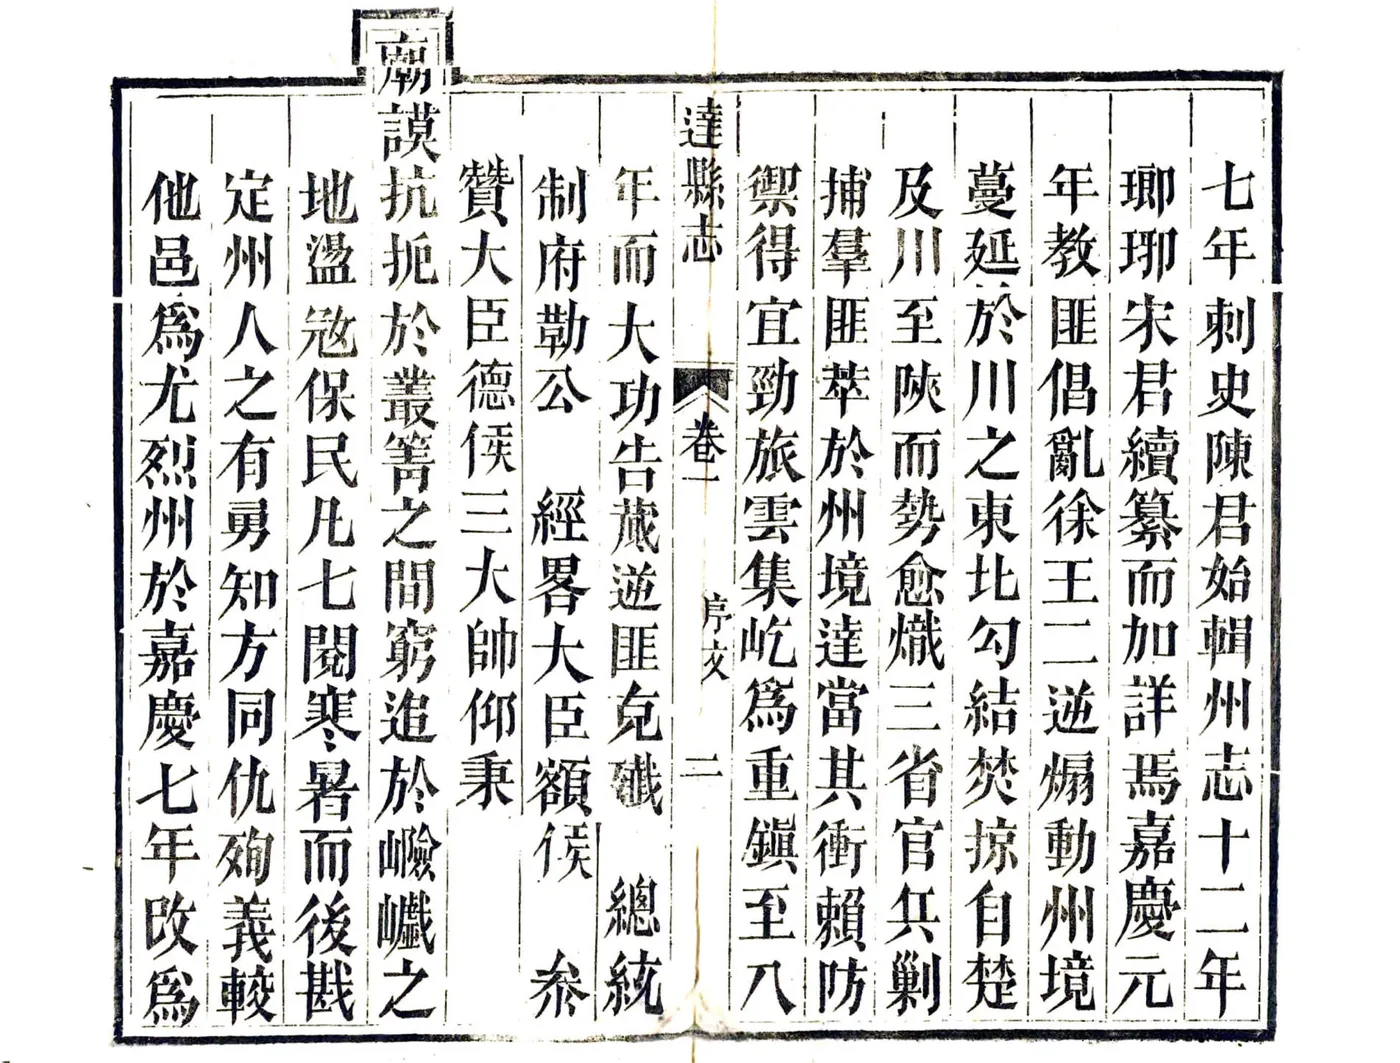 七年刺史陳君始輯州志十二年
瑯琊宋君續纂而加詳焉嘉慶元
年教匪倡亂徐王二逆煽動州境
蔓延於川之東北勾結焚掠自楚
及川至陝而勢愈熾三省官兵剿
捕羣匪萃於州境達當其衝賴防
禦得宜勁旅雲集屹爲重鎭至八
達縣志 卷一 序文 二
年而大功告蕆逆匪克殲 總統
制府勒公 經畧大臣額侯 叅
贊大臣德侯三大帥仰秉
廟謨抗扼於叢箐之間窮追於嶮巇之
地盪宼保民凡七閱寒暑而後戡
定州人之有勇知方同仇殉義較
他邑爲尤烈州於嘉慶七年改爲